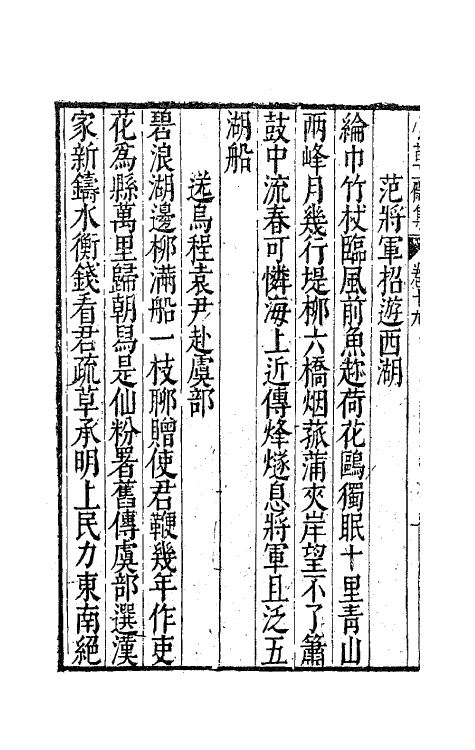 范將軍招遊西湖
綸巾竹杖臨風前魚趂荷花鷗獨眠十里青山
两峰月幾行堤柳六橋烟菰蒲夾岸望不了簫
鼓中流春可憐海上近傳烽燧息將軍且泛五
湖船
送烏程袁尹赴虞部
碧浪湖邊柳滿船一枝聊贈使君鞭幾年作吏
花爲縣萬里歸朝舄是仙粉署舊傳虞部選漢
家新鑄水衡錢看君疏草承明上民力東南絕